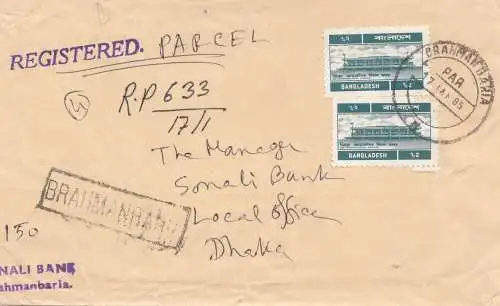 REGISTERED. PARCEL
R.P 633
17/1
The Manager
Sonali Bank
Local Office
Dhaka
৳২ বাংলাদেশ
BANGLADESH ৳2
৳২ বাংলাদেশ
BANGLADESH ৳2
BRAHMANBARIA
PAR
17 JAN 85
BRAHMANBARI
150
NALI BANK
ahmanbaria.